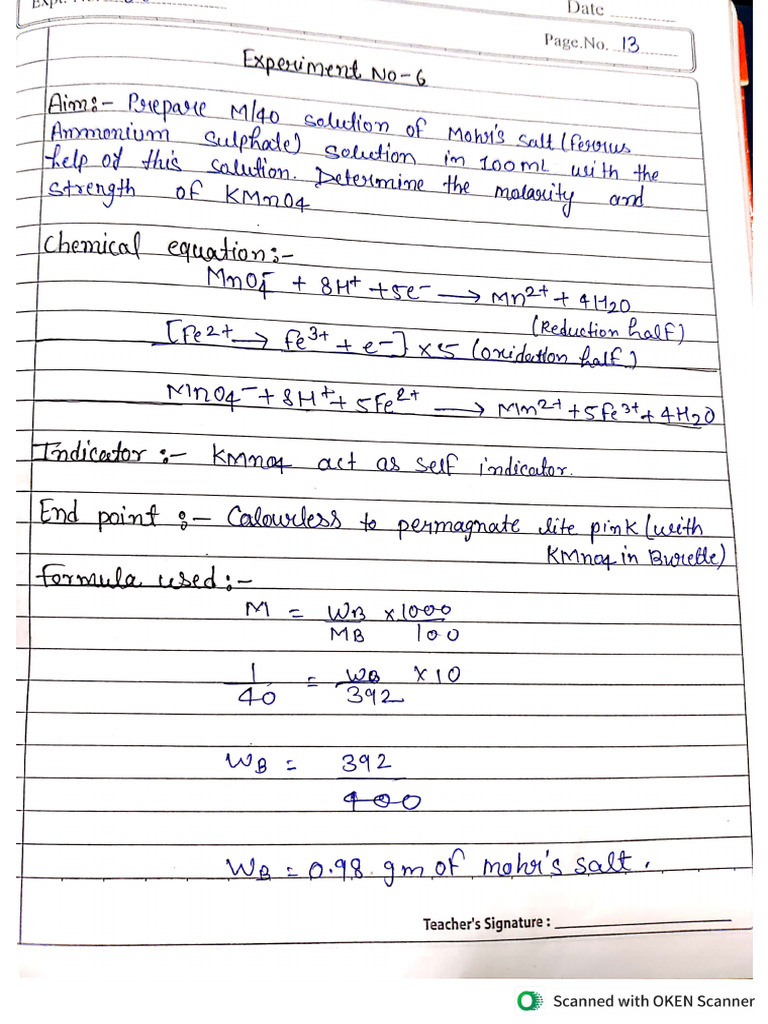 Expt. No.
Date
Page.No. 13
Experiment No-6
Aim:- Prepare M/40 solution of Mohr's salt (ferrous
Ammonium Sulphate) solution in 100mL with the
help of this solution. Determine the molarity and
strength of KMnO4
Chemical equation:-
MnO4⁻ + 8H⁺ + 5e⁻ → Mn²⁺ + 4H2O
(Reduction half)
[Fe²⁺ → Fe³⁺ + e⁻] × 5 (oxidation half)
MnO4⁻ + 8H⁺ + 5Fe²⁺ → Mn²⁺ + 5Fe³⁺ + 4H2O
Indicator :- KMnO4 act as self indicator.
End point :- Calourless to permagnate lite pink (with
KMnO4 in Burette)
Formula used:-
M = WB/MB × 1000/100
1/40 = WB/392 × 10
WB = 392/400
WB = 0.98 gm of mohr's salt.
Teacher's Signature :
Scanned with OKEN Scanner